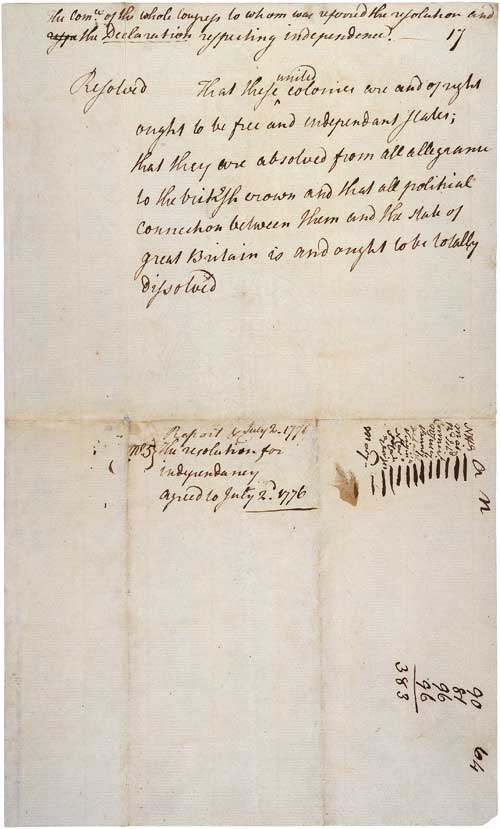 The com.ee of the whole Congress to whom was referred the resolution and
respe the Declaration respecting independence. — 17
Resolved That these united colonies are and of right
ought to be free and independant states;
that they are absolved from all allegiance
to the british crown and that all political
connection between them and the state of
great Britain is and ought to be totally
dissolved
Report & July 2. 1776
No. 5 the resolution for
independancy
agreed to July 2d. 1776
a n
90
81
96
96
383
64